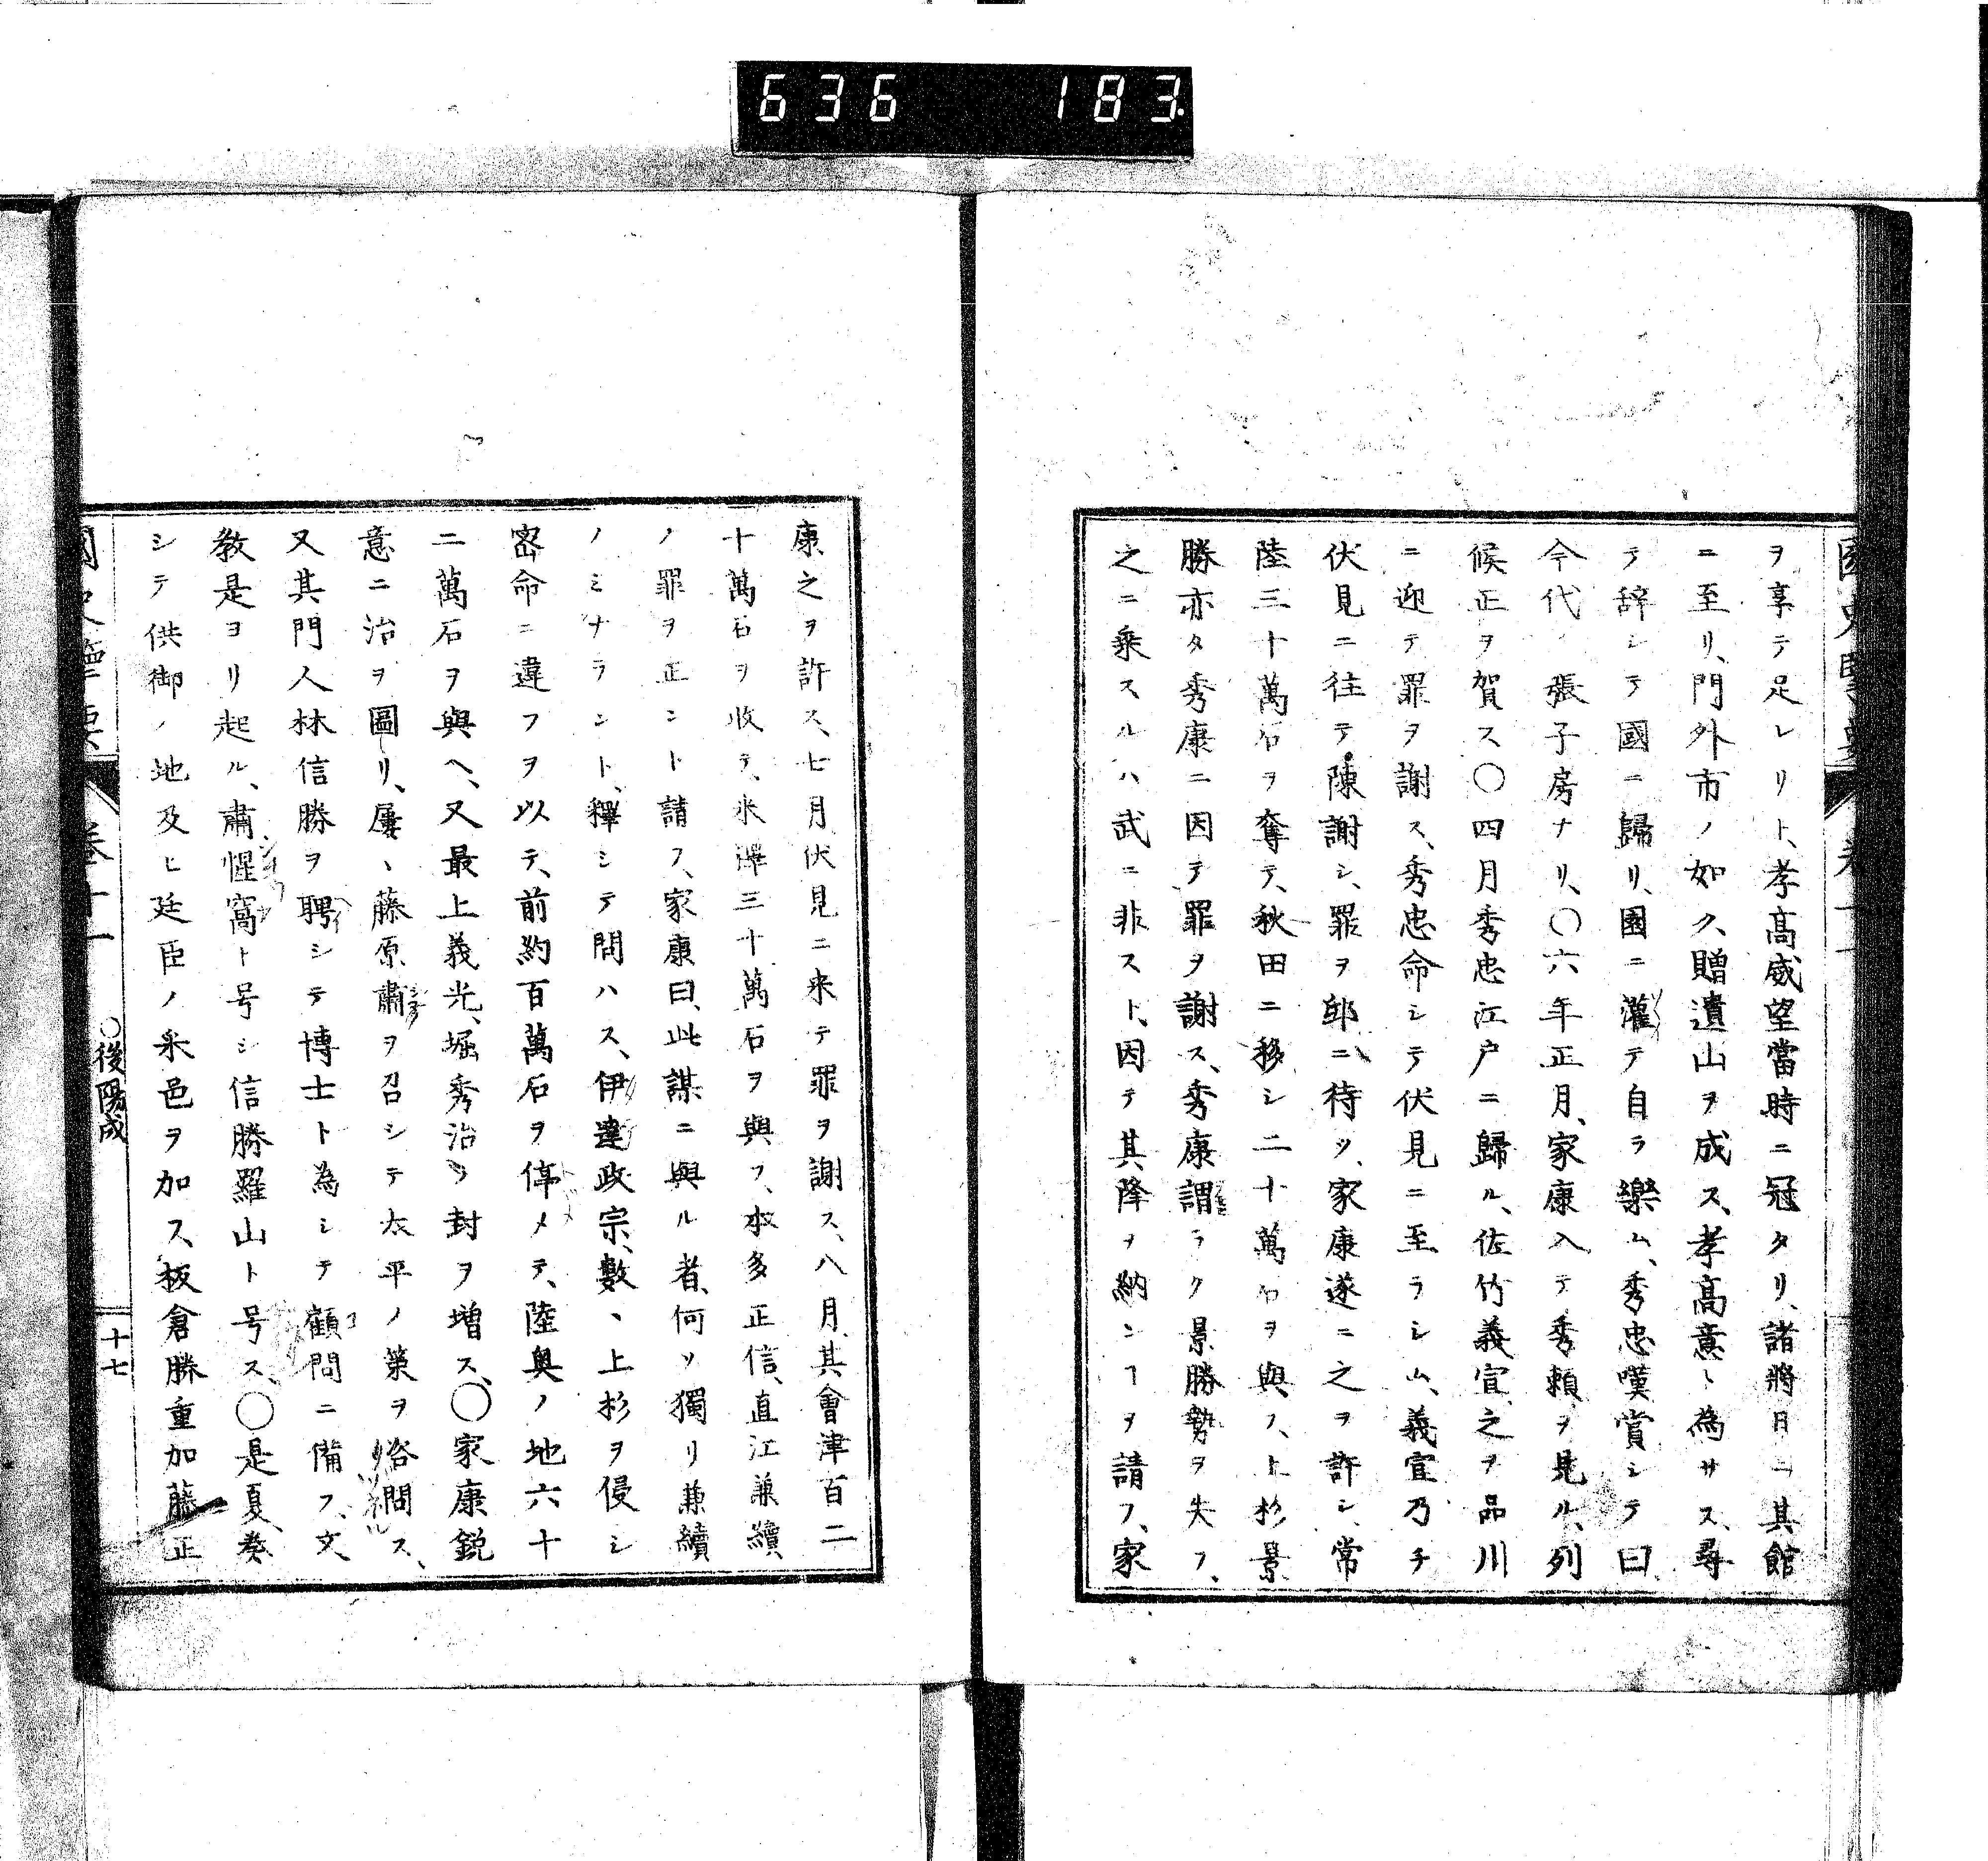 636 183.
ヲ享テ足レリト、孝高威望當時ニ冠タリ、諸將日ニ其館
ニ至リ、門外市ノ如ク、贈遺山ヲ成ス、孝高意ト為サス、尋
テ辞シテ國ニ歸リ、園ニ灌テ自ラ樂ム、秀忠嘆賞シテ曰
今代ノ張子房ナリ、〇六年正月、家康入テ秀頼ヲ見ル、列
候正ヲ賀ス〇四月秀忠江戸ニ歸ル、佐竹義宣之ヲ品川
ニ迎テ罪ヲ謝ス、秀忠命シテ伏見ニ至ラシム、義宣乃チ
伏見ニ往テ陳謝シ、罪ヲ邸ニ待ツ、家康遂ニ之ヲ許シ、常
陸三十萬石ヲ奪テ、秋田ニ移シ二十萬石ヲ與フ、上杉景
勝亦タ秀康ニ因テ罪ヲ謝ス、秀康謂ラク景勝勢ヲ失フ、
之ニ乘スルハ武ニ非スト、因テ其降ヲ納ンヿヲ請フ、家
康之ヲ許ス、七月伏見ニ来テ罪ヲ謝ス、八月、其會津百二
十萬石ヲ收テ、米澤三十萬石ヲ與フ、本多正信、直江兼續
ノ罪ヲ正ント請フ、家康曰、此謀ニ與ル者、何ソ獨リ兼續
ノミナラント、釋シテ問ハス、伊達政宗、數、上杉ヲ侵シ
密命ニ違フヲ以テ、前約百萬石ヲ停メテ、陸奥ノ地六十
二萬石ヲ與ヘ、又最上義光、堀秀治ヲ封ヲ増ス、〇家康鋭
意ニ治ヲ圖リ、屢、藤原肅ヲ召シテ太平ノ策ヲ咨問ス、
又其門人林信勝ヲ聘シテ博士ト為シテ顧問ニ備フ、文
教是ヨリ起ル、肅惺窩ト号シ信勝羅山ト号ス、〇是夏、奏
シテ供御ノ地及ヒ廷臣ノ采邑ヲ加ス、板倉勝重加藤正
卷十一 〇後陽成 十七